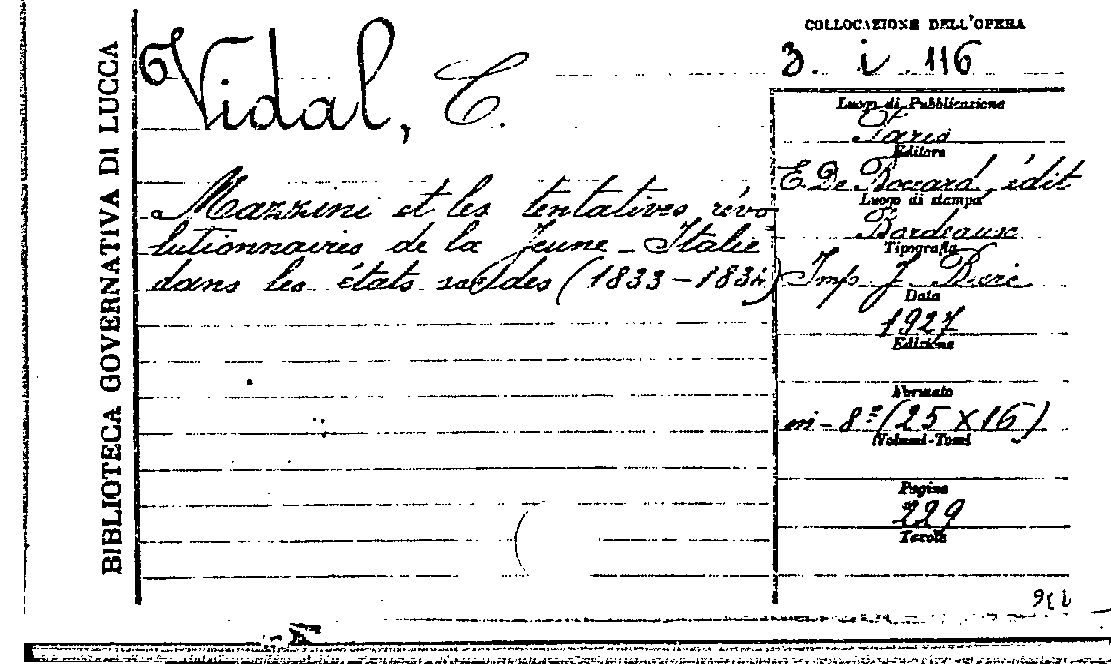 BIBLIOTECA GOVERNATIVA DI LUCCA
6
Vidal, C.
Mazzini et les tentatives révo-
lutionnaires de la Jeune-Italie
dans les états sardes (1833-1834)
COLLOCAZIONE DELL'OPERA
3. i. 116
Luogo di Pubblicazione
Paris
Editore
E. De Boccard, édit
Luogo di stampa
Bordeaux
Tipografia
Imp J. Bière
Data
1927
Edizione
Formato
in-8º (25 x 16)
(Volumi-Tomi
Pagine
229
Tavole